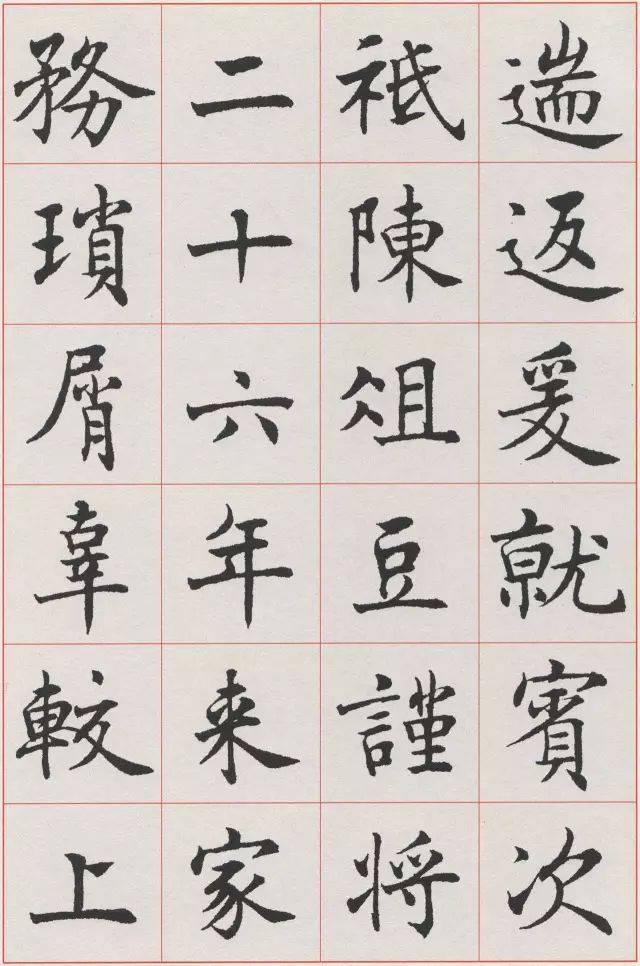 遄返爰就賓次
祇陳俎豆謹将
二十六年来家
務瑣屑辜較上